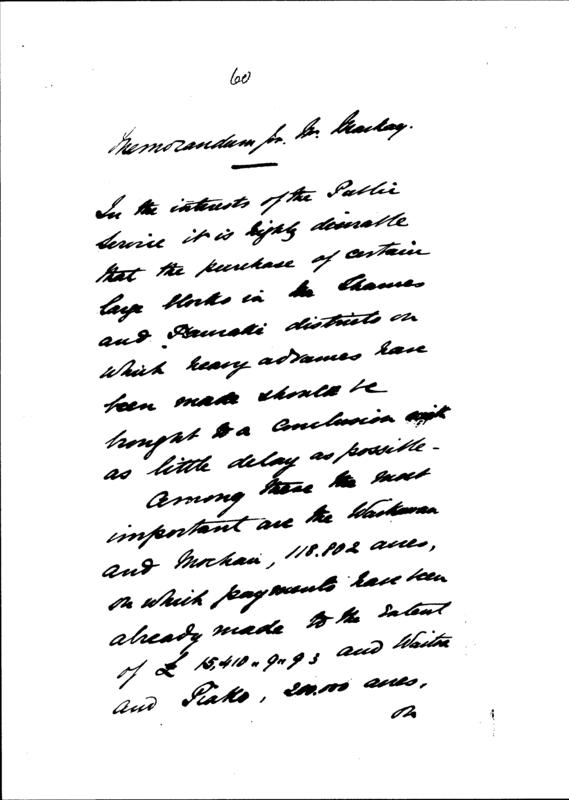 60
Memorandum for Mr. Mackay.
In the interests of the Public
Service it is highly desirable
that the purchase of certain
large blocks in the Thames
and Hauraki districts on
which heavy advances have
been made should be
brought to a conclusion with
as little delay as possible -
Among these the most
important are the
and Moehau, 118.802 acres,
on which payments have been
already made to the extent
of £ 15,410 " 9 " 9 and Waitoa
and Piako, 200.000 acres,
on